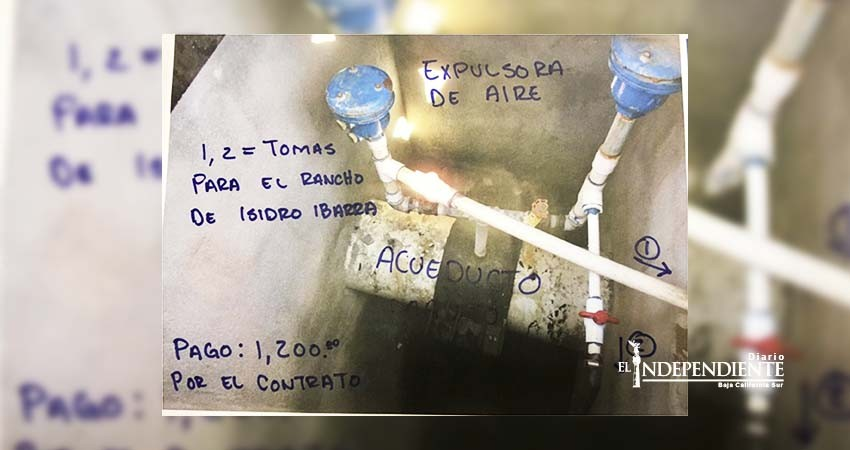 EXPULSORA
DE AIRE
1, 2 = TOMAS
PARA EL RANCHO
DE ISIDRO IBARRA
ACUEDUCTO
①
PAGO: 1,200.00
POR EL CONTRATO
Diario
EL INDEPENDIENTE
Baja California Sur
1, 2 =
PARA
DE IS
PAGO:
POR EL